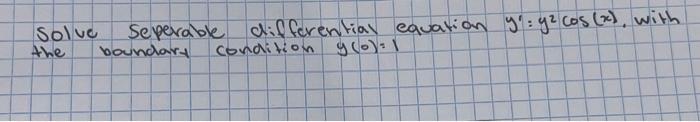 Solve Seperable differential equation y' = y² cos(x), with
the boundary condition y(0) = 1